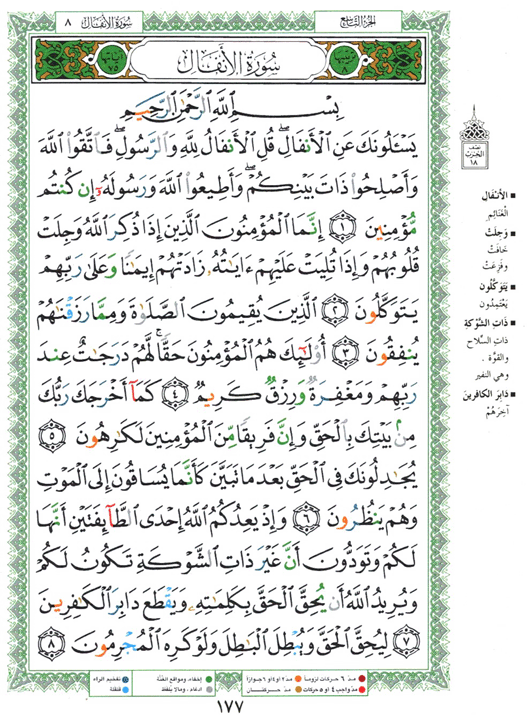 الجزء التاسع
سورة الأنفال ٨
سُورَةُ الأَنفَالِ
بِسْمِ اللَّهِ الرَّحْمَٰنِ الرَّحِيمِ
يَسْـَٔلُونَكَ عَنِ ٱلْأَنفَالِ ۖ قُلِ ٱلْأَنفَالُ لِلَّهِ وَٱلرَّسُولِ ۖ فَٱتَّقُوا۟ ٱللَّهَ
وَأَصْلِحُوا۟ ذَاتَ بَيْنِكُمْ ۖ وَأَطِيعُوا۟ ٱللَّهَ وَرَسُولَهُۥٓ إِن كُنتُم
مُّؤْمِنِينَ ١ إِنَّمَا ٱلْمُؤْمِنُونَ ٱلَّذِينَ إِذَا ذُكِرَ ٱللَّهُ وَجِلَتْ
قُلُوبُهُمْ وَإِذَا تُلِيَتْ عَلَيْهِمْ ءَايَٰتُهُۥ زَادَتْهُمْ إِيمَٰنًا وَعَلَىٰ رَبِّهِمْ
يَتَوَكَّلُونَ ٢ ٱلَّذِينَ يُقِيمُونَ ٱلصَّلَوٰةَ وَمِمَّا رَزَقْنَٰهُمْ
يُنفِقُونَ ٣ أُو۟لَٰٓئِكَ هُمُ ٱلْمُؤْمِنُونَ حَقًّا ۚ لَّهُمْ دَرَجَٰتٌ عِندَ
رَبِّهِمْ وَمَغْفِرَةٌ وَرِزْقٌ كَرِيمٌ ٤ كَمَآ أَخْرَجَكَ رَبُّكَ
مِنۢ بَيْتِكَ بِٱلْحَقِّ وَإِنَّ فَرِيقًا مِّنَ ٱلْمُؤْمِنِينَ لَكَٰرِهُونَ ٥
يُجَٰدِلُونَكَ فِى ٱلْحَقِّ بَعْدَ مَا تَبَيَّنَ كَأَنَّمَا يُسَاقُونَ إِلَى ٱلْمَوْتِ
وَهُمْ يَنظُرُونَ ٦ وَإِذْ يَعِدُكُمُ ٱللَّهُ إِحْدَى ٱلطَّآئِفَتَيْنِ أَنَّهَا
لَكُمْ وَتَوَدُّونَ أَنَّ غَيْرَ ذَاتِ ٱلشَّوْكَةِ تَكُونُ لَكُمْ
وَيُرِيدُ ٱللَّهُ أَن يُحِقَّ ٱلْحَقَّ بِكَلِمَٰتِهِۦ وَيَقْطَعَ دَابِرَ ٱلْكَٰفِرِينَ
٧ لِيُحِقَّ ٱلْحَقَّ وَيُبْطِلَ ٱلْبَٰطِلَ وَلَوْ كَرِهَ ٱلْمُجْرِمُونَ ٨
نصف
الحزب
١٨
الأنفال
الغَنَائِم
وَجِلَتْ
خَافَتْ
وفَزِعَتْ
يَتَوَكَّلُون
يَعْتَمِدُون
ذاتِ الشَّوْكَةِ
ذاتِ السِّلاح
والقوَّة .
وهي النفير
دَابِرَ الكافرين
آخِرَهُمْ
مدّ ٦ حركات لزوماً
مدّ ٢ أو ٤ أو ٦ جوازاً
إخفاء، ومواقع الغُنَّة
تفخيم الراء
مدّ واجب ٤ أو ٥ حركات
مدّ حركتان
ادغام، وما لا يُلفَظ
قلقلة
١٧٧